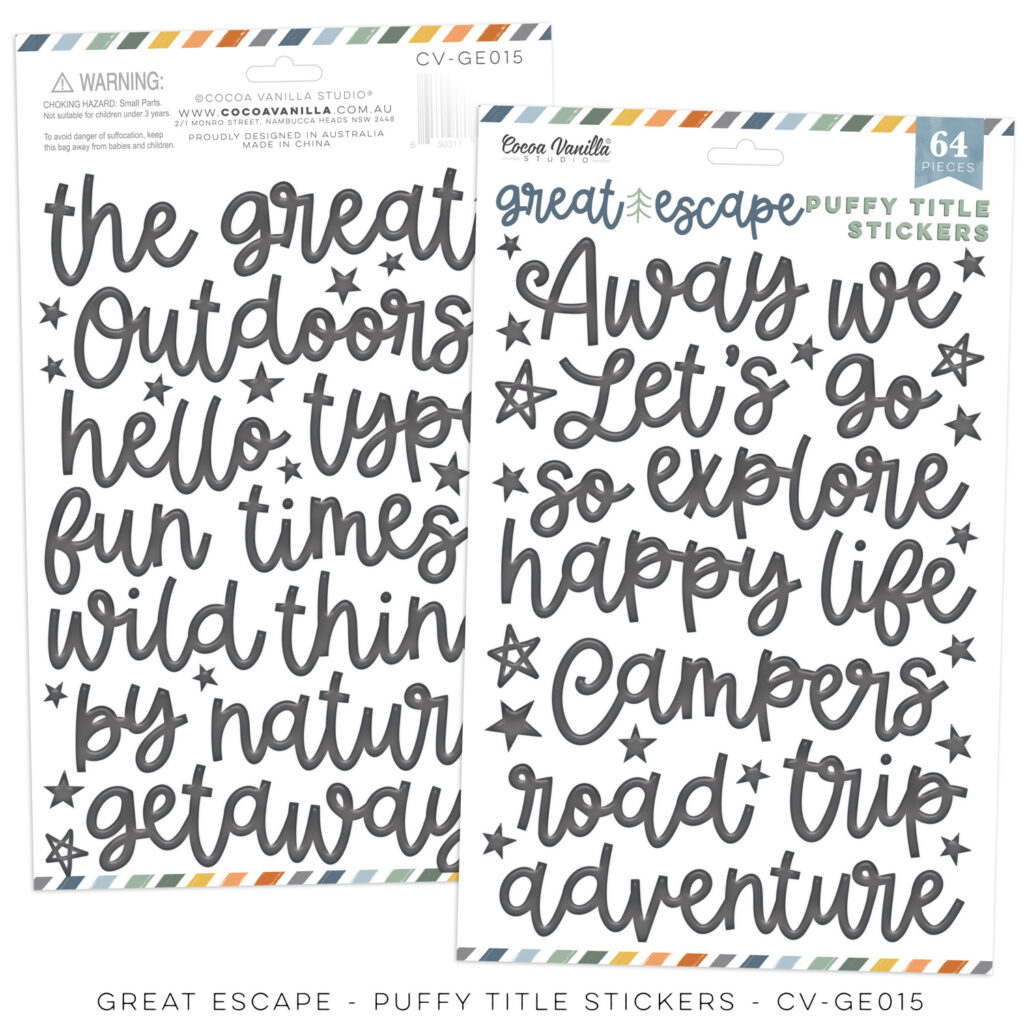 CV-GE015
WARNING:
CHOKING HAZARD: Small Parts.
Not suitable for children under 3 years.
To avoid danger of suffocation, keep
this bag away from babies and children.
©COCOA VANILLA STUDIO®
WWW.COCOAVANILLA.COM.AU
2/1 MONRO STREET, NAMBUCCA HEADS NSW 2448
PROUDLY DESIGNED IN AUSTRALIA
MADE IN CHINA
6 50311
the great
Outdoors
hello type
fun times
wild thin
by natur
getaway
Cocoa Vanilla®
STUDIO
64
PIECES
great escape PUFFY TITLE
STICKERS
Away we
Let's go
so explore
happy life
Campers
road trip
adventure
GREAT ESCAPE - PUFFY TITLE STICKERS - CV-GE015